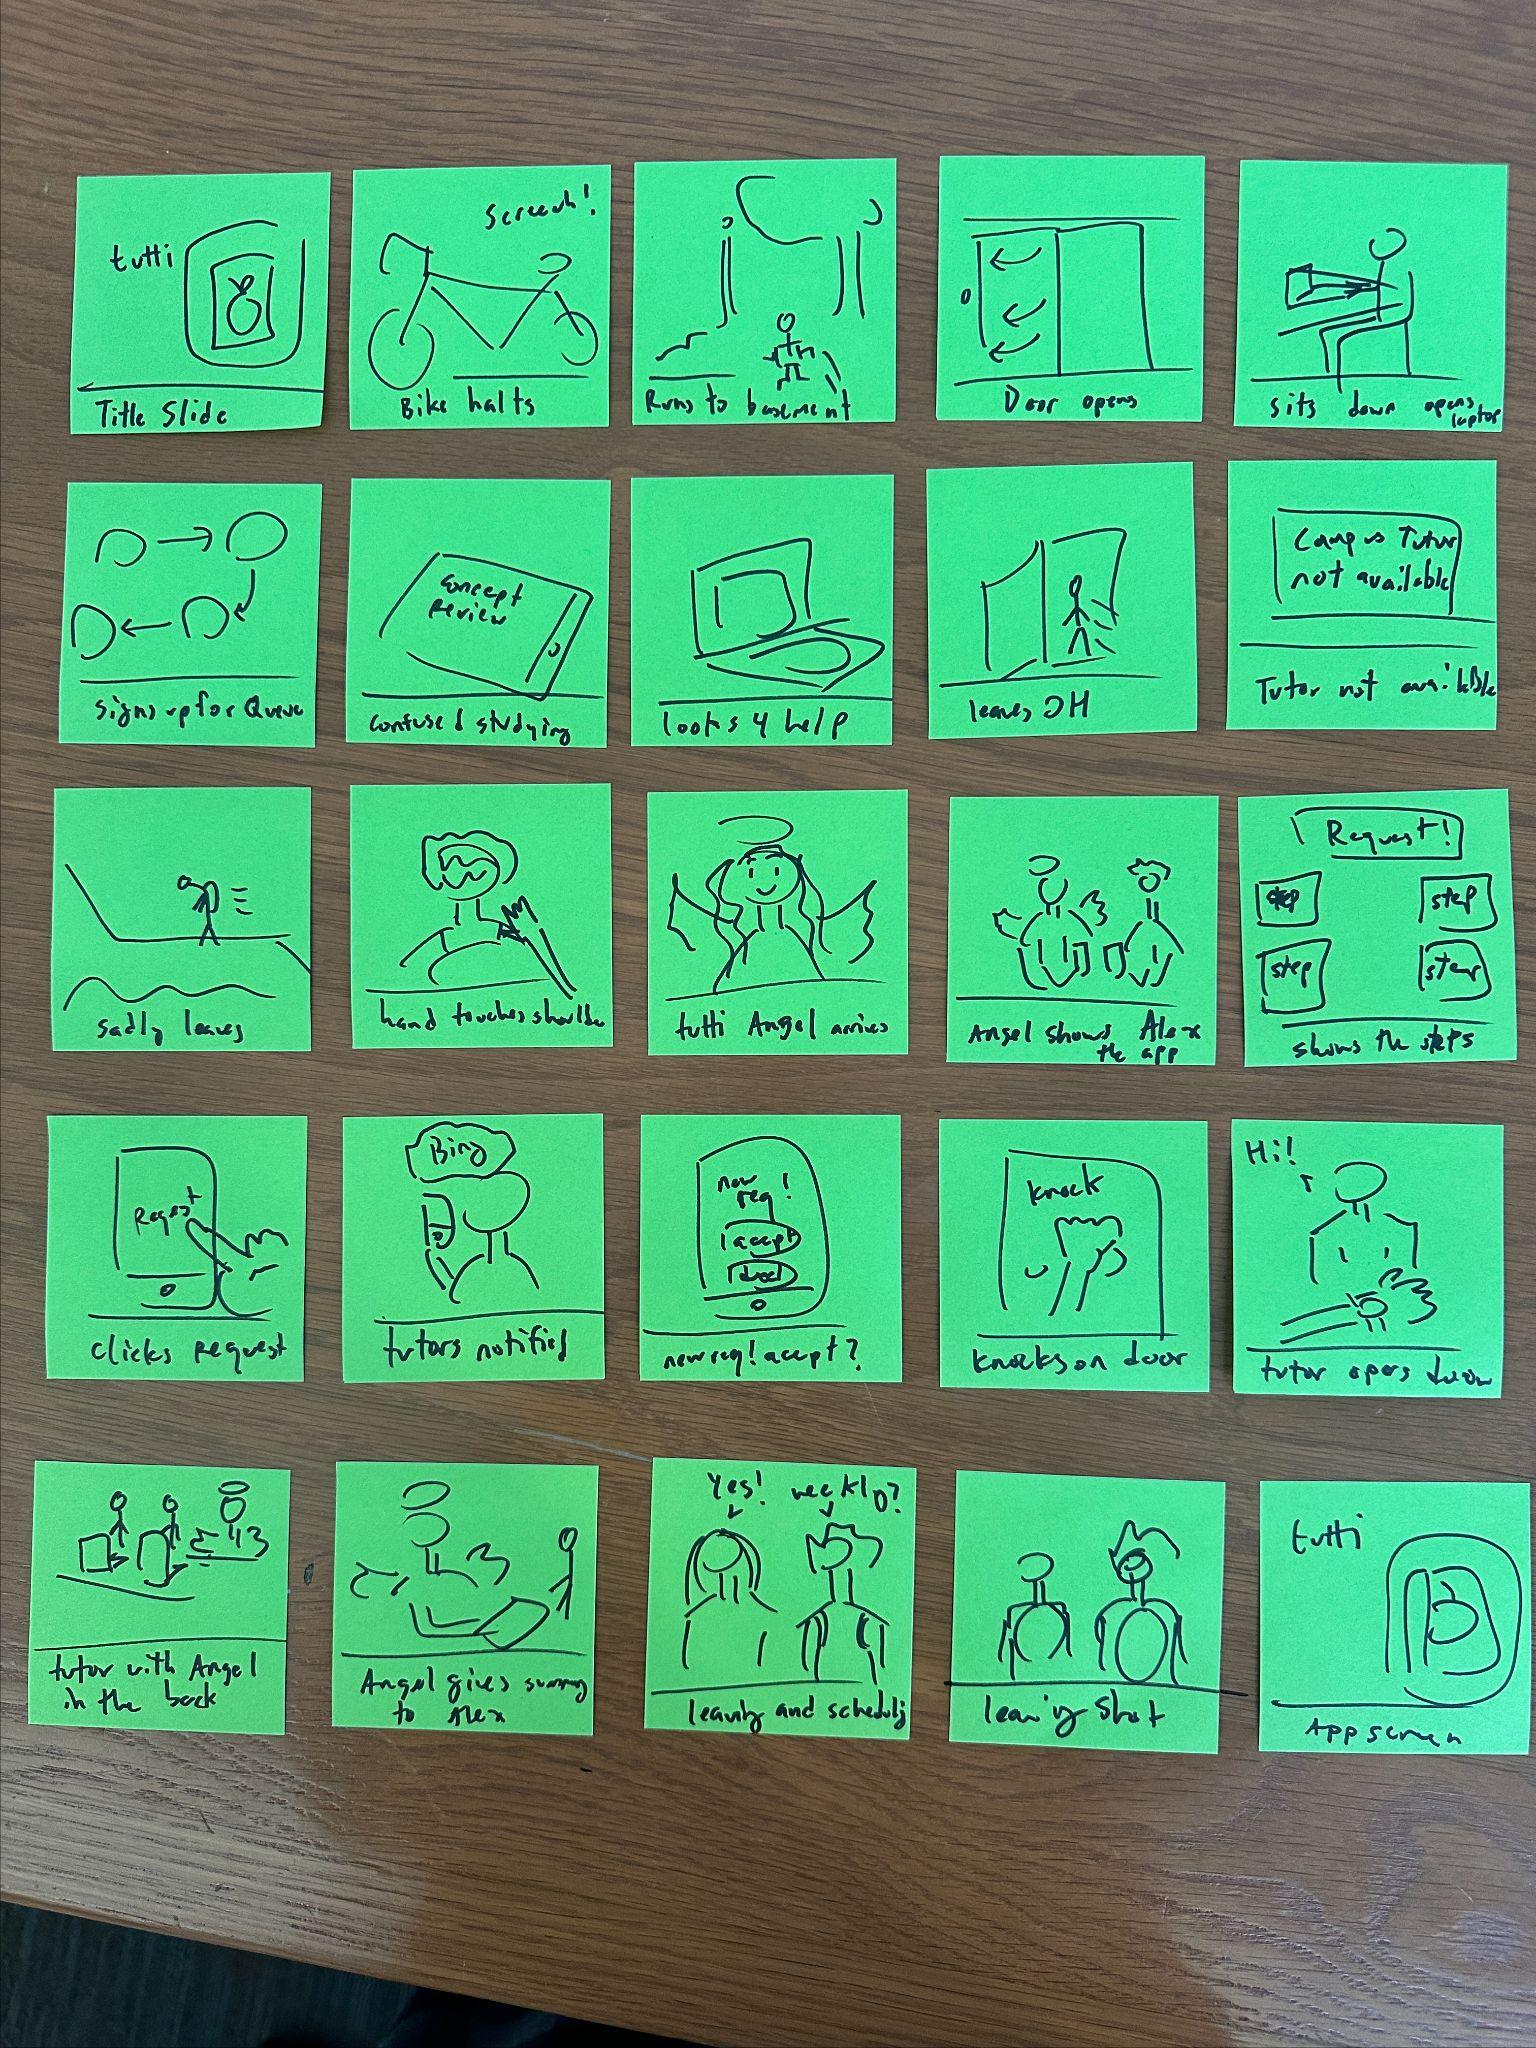 tutti
Title Slide
Screech!
Bike halts
Runs to basement
Door opens
sits down opens
laptop
signs up for Queue
concept
review
confused studying
looks 4 help
leaves OH
Campus Tutor
not available
Tutor not available
sadly leaves
hand touches shoulder
tutti Angel arrives
Angel shows Alex
the app
Request!
step
step
step
step
shows the steps
Request
clicks request
Bing
tutors notified
new
req!
accept
new req! accept?
knock
knocks on door
Hi!
tutor opens door
tutor with Angel
in the back
Angel gives summary
to Alex
Yes!
weekly?
leaving and scheduling
leaving shot
tutti
App screen